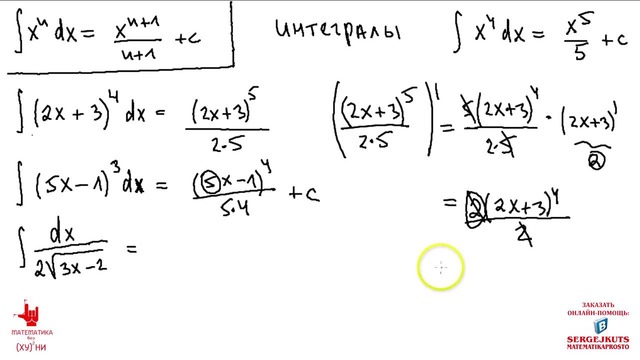 ∫xⁿ dx = xⁿ⁺¹/(n+1) + c
интегралы
∫ x⁴ dx = x⁵/5 + c
∫ (2x + 3)⁴ dx = (2x+3)⁵/(2·5)
((2x+3)⁵/(2·5))' = 5(2x+3)⁴/(2·5) · (2x+3)'
2
∫ (5x-1)³ dx = (5x-1)⁴/(5·4) + c
= 2(2x+3)⁴/2
∫ dx/(2√(3x-2)) =
МАТЕМАТИКА
без
(ХУ)²НИ
ЗАКАЗАТЬ
ОНЛАЙН-ПОМОЩЬ:
SERGEJKUTS
MATEMATIKAPROSTO